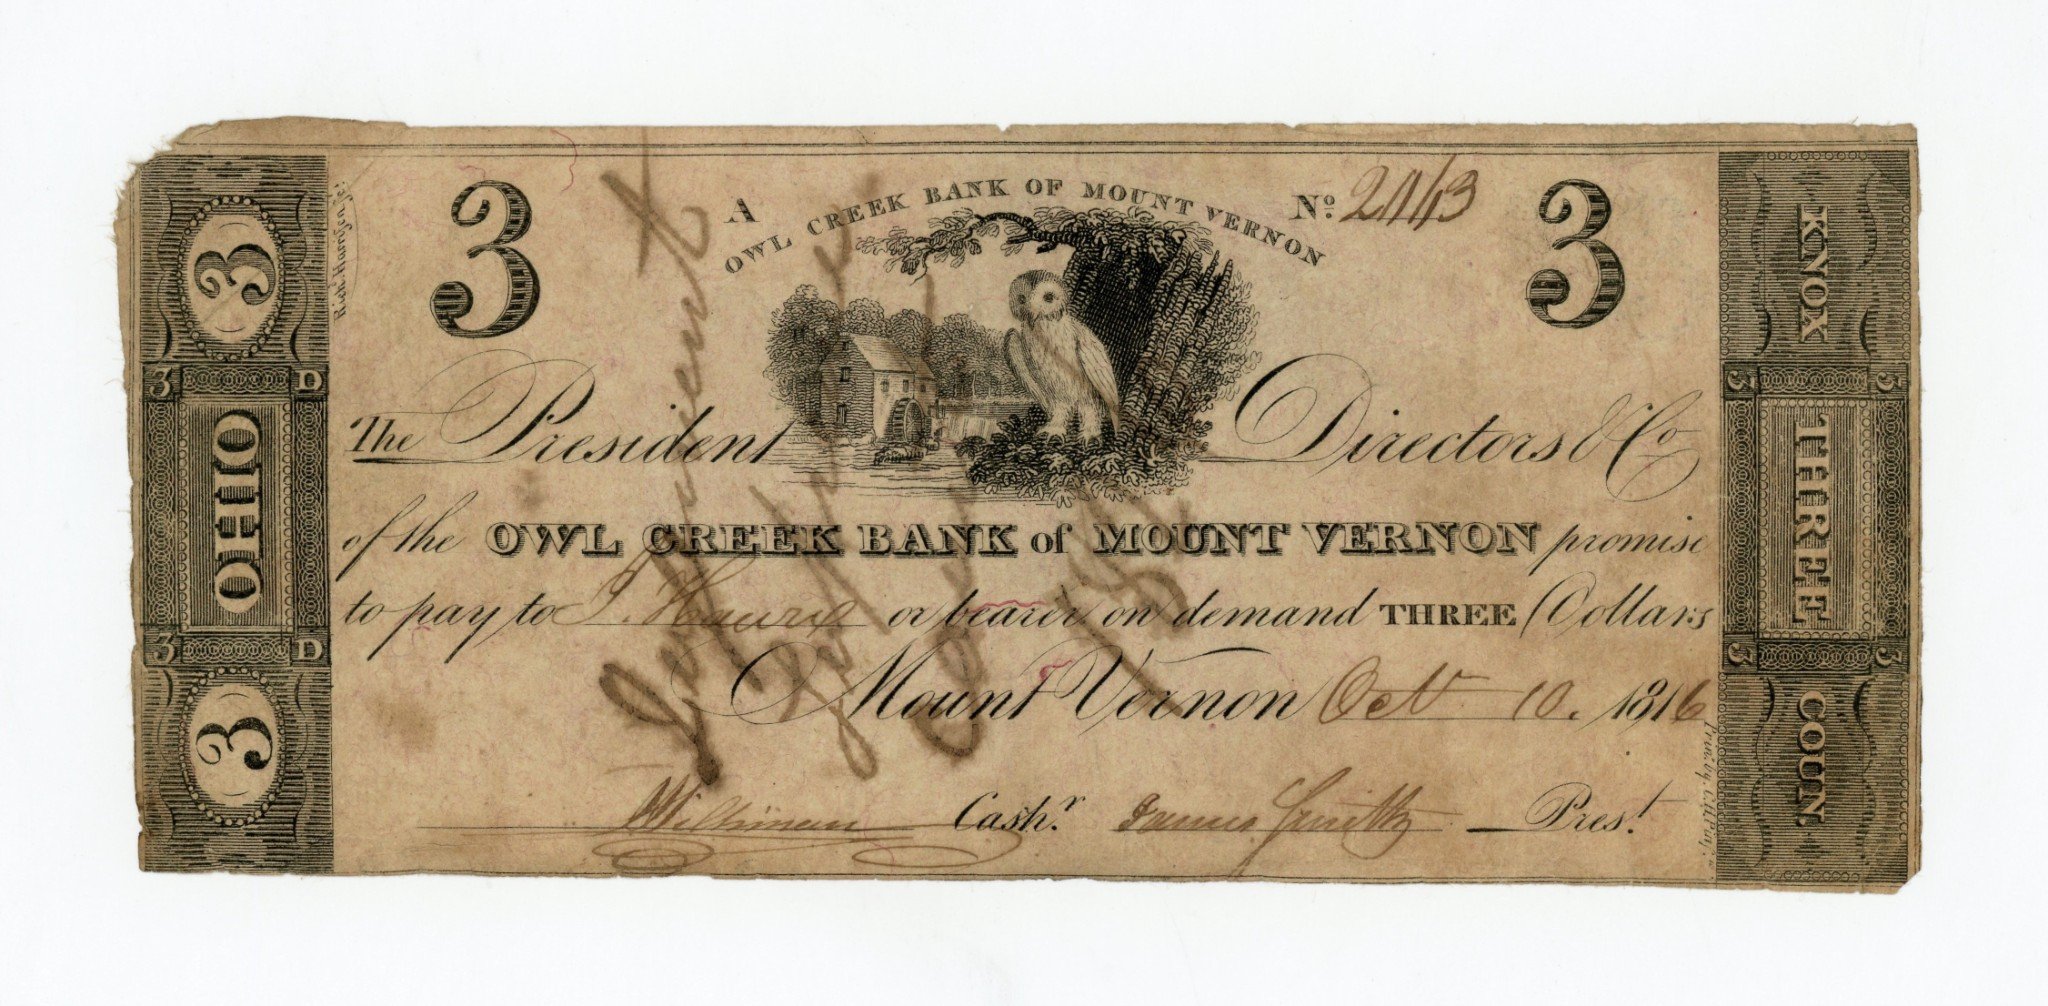 3
A
OWL CREEK BANK OF MOUNT VERNON
No.
3
The President Directors & Co
of the OWL CREEK BANK of MOUNT VERNON promise
to pay to or bearer on demand THREE Dollars
Mount Vernon Oct 10. 1816
Cashr. James Smith Prest.
3
3 D
OHIO
3 D
3
KNOX
3 3
THREE
3 3
COUN.